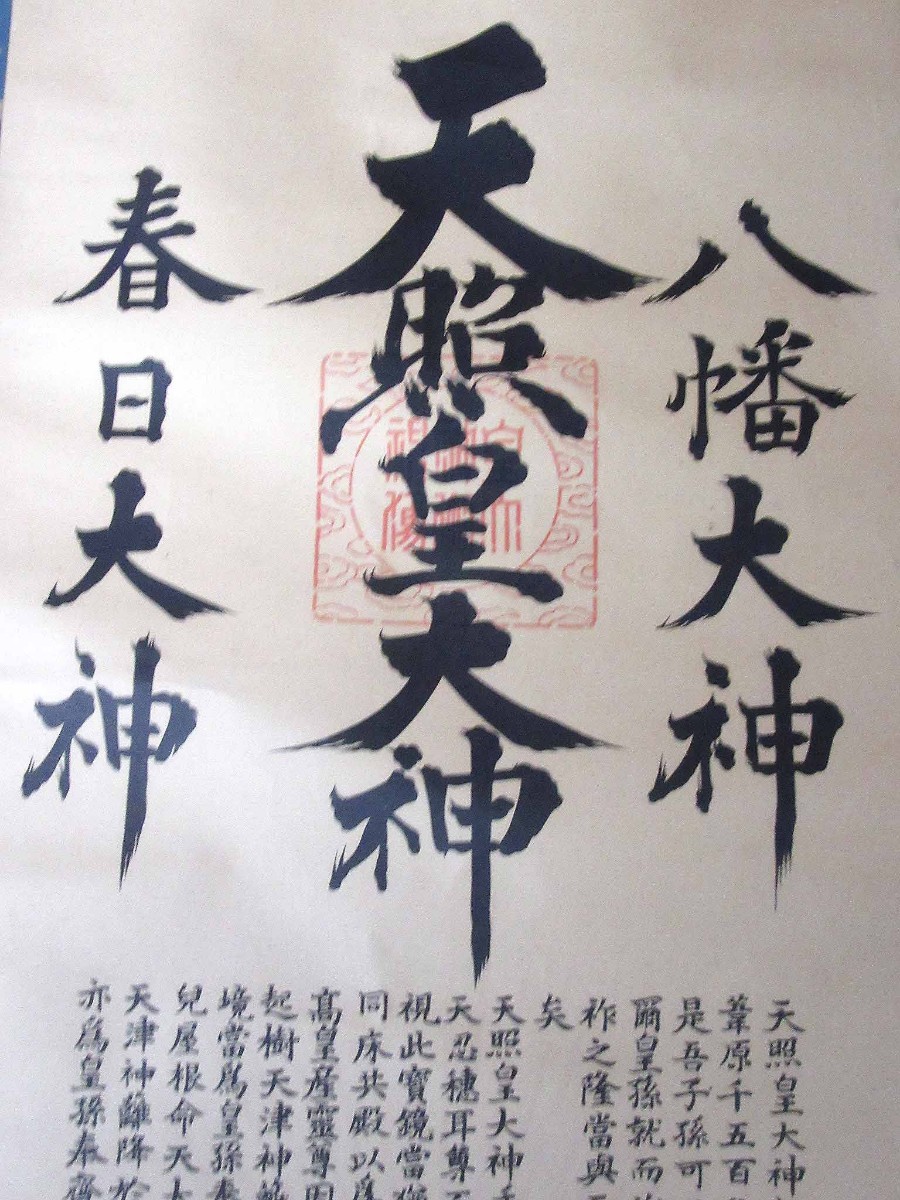 八幡大神
天照皇大神
春日大神
天照皇大神
葦原千五百
是吾子孫可
爾皇孫就而
祚之隆當與
矣
天照皇大神手
天忍穗耳尊
視此寶鏡當猶
同床共殿以爲
高皇產靈尊因
起樹天津神籬
境當爲皇孫奉
兒屋根命天太
天津神籬降於
亦爲皇孫奉齋